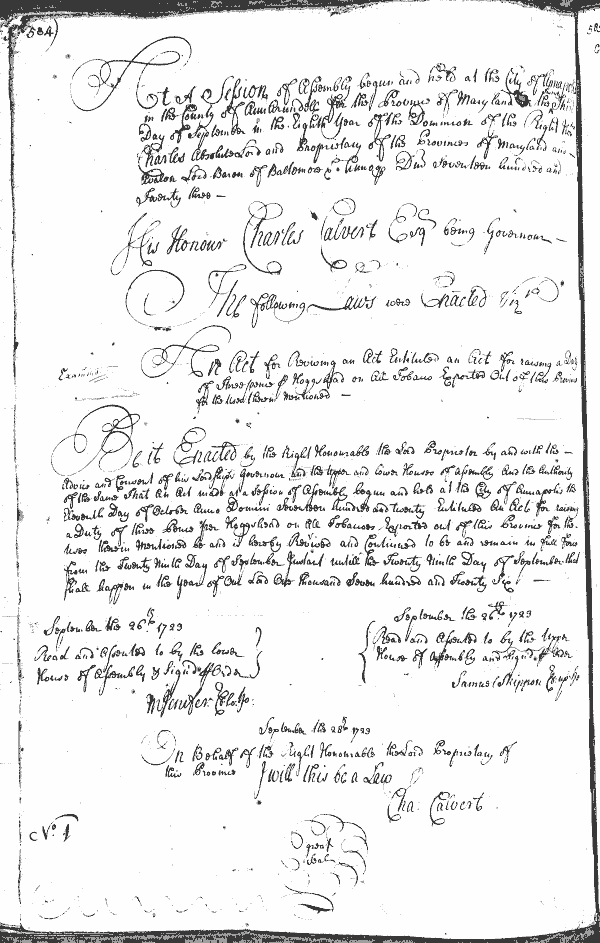 584)
At A Session of Assembly begun and held at the City of Annapolis
in the County of Annarundell for the Province of Maryland the
Day of September in the Eighth Year of the Dominion of the Right
Charles Absolute Lord and Proprietary of the Provinces of Maryland and
Avalon Lord Baron of Baltemore &c Annoq Dm̃ Seventeen hundred and
Twenty three —
His Honour Charles Calvert Esqr being Governour —
The following Laws were Enacted Vizt
Examined
An Act for Reviving an Act Entituled an Act for raising a Duty
of three pence P Hoggshead on All Tobaco Exported Out of this Province
for the Uses therein mentioned —
Be it Enacted by the Right Honourable the Lord Proprietor by and with the —
Advice and Consent of his Lordships Governour and the Upper and Lower Houses of Assembly And the Authority
of the Same That An Act made at a Session of Assembly begun and held at the City of Annapolis the
Eleventh Day of October Anno Domini Seventeen hundred and twenty Entituled An Act for raising
a Duty of three Pence Per Hoggshead on All Tobaccos Exported out of this Province for the
uses therein Mentioned be and is hereby Revived and Continued to be and remain in full force
from the Twenty Ninth Day of September Instant untill the Twenty Ninth Day of September that
shall happen in the Year of Our Lord One thousand Seven hundred and Twenty Six —
September the 26th 1723
Read and Assented to by the Lower
House of Assembly & Signd p Order
MJenifer Clo. Ho:
September the 26th 1723
Read and Assented to by the Upper
House of Assembly and Signd p Order
Samuel Skippon
September the 28th 1723
On Behalf of the Right Honourable the Lord Proprietary of
this Province I will this be a Law
Cha: Calvert
No. 1
great
Seal